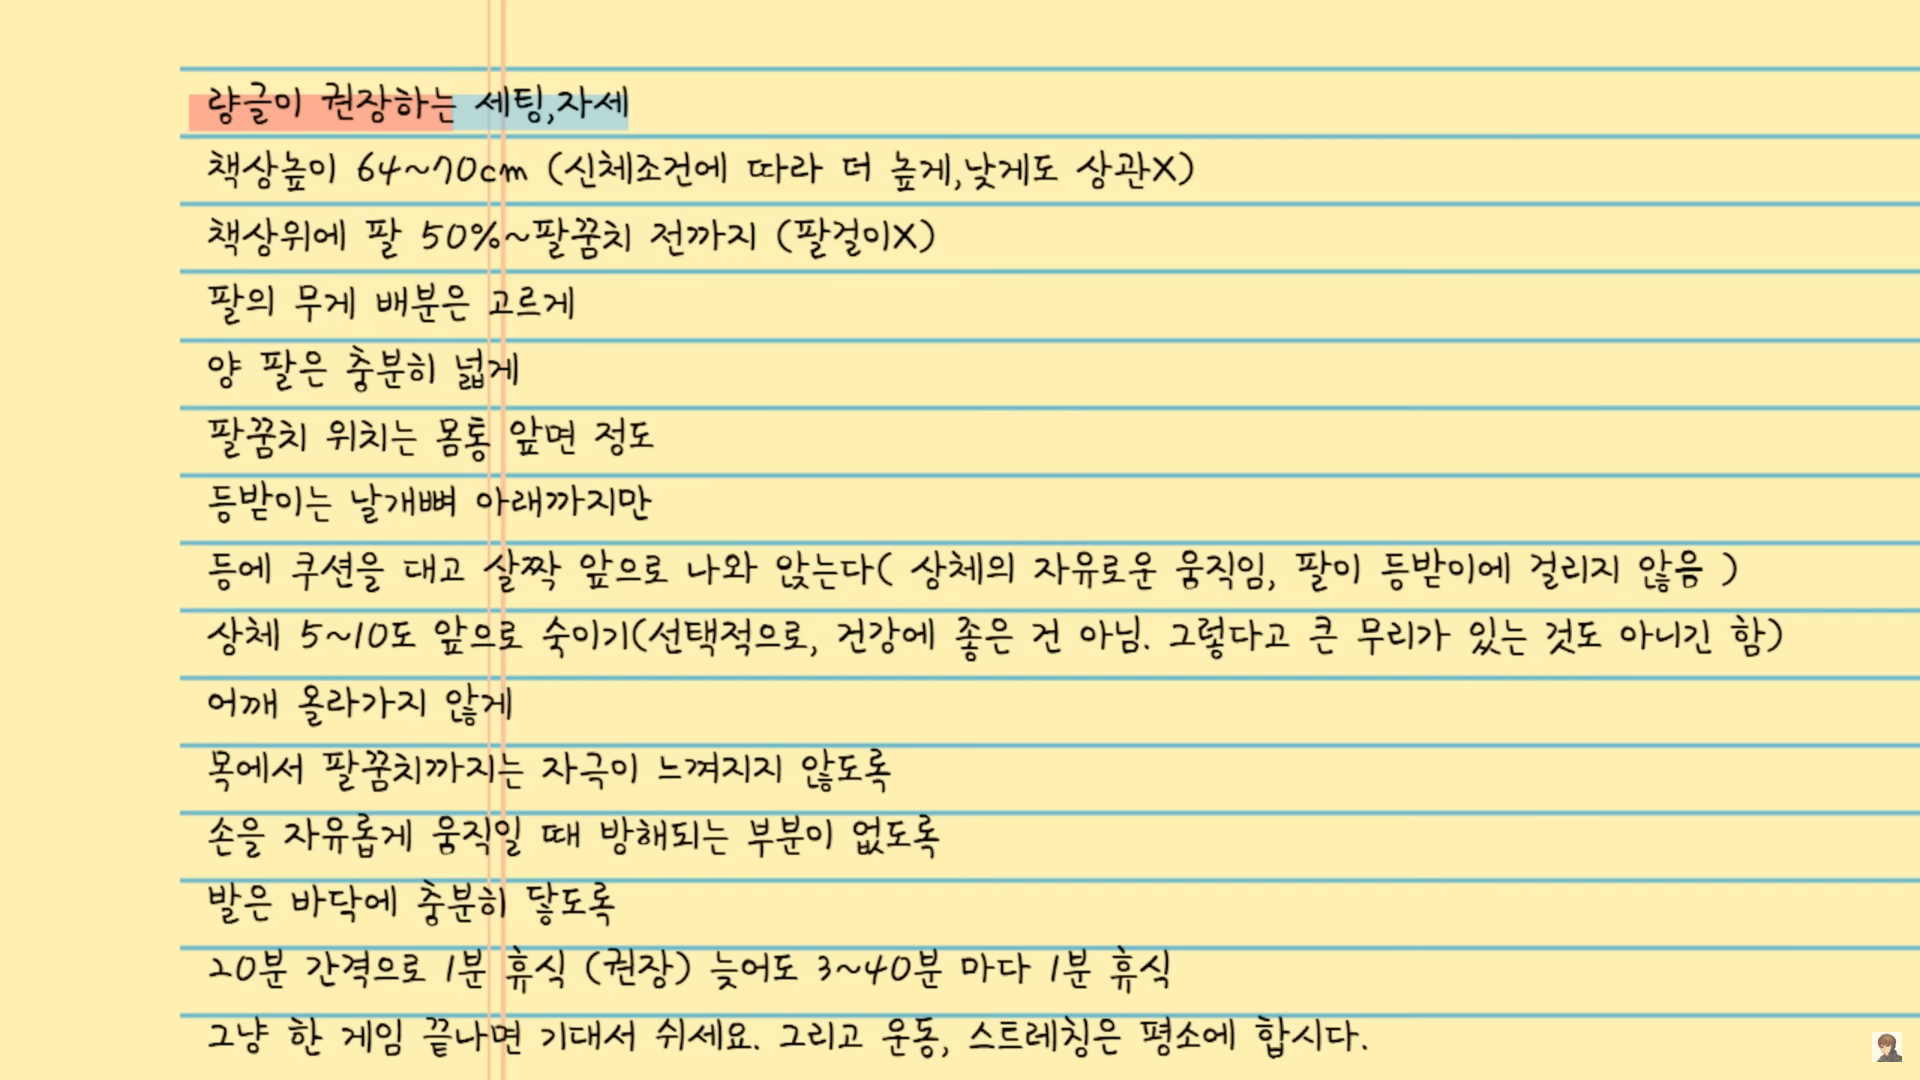 량글이 권장하는 세팅,자세
책상높이 64~70cm (신체조건에 따라 더 높게,낮게도 상관X)
책상위에 팔 50%~팔꿈치 전까지 (팔걸이X)
팔의 무게 배분은 고르게
양 팔은 충분히 넓게
팔꿈치 위치는 몸통 앞면 정도
등받이는 날개뼈 아래까지만
등에 쿠션을 대고 살짝 앞으로 나와 앉는다( 상체의 자유로운 움직임, 팔이 등받이에 걸리지 않음 )
상체 5~10도 앞으로 숙이기(선택적으로, 건강에 좋은 건 아님. 그렇다고 큰 무리가 있는 것도 아니긴 함)
어깨 올라가지 않게
목에서 팔꿈치까지는 자극이 느껴지지 않도록
손을 자유롭게 움직일 때 방해되는 부분이 없도록
발은 바닥에 충분히 닿도록
20분 간격으로 1분 휴식 (권장) 늦어도 3~40분 마다 1분 휴식
그냥 한 게임 끝나면 기대서 쉬세요. 그리고 운동, 스트레칭은 평소에 합시다.